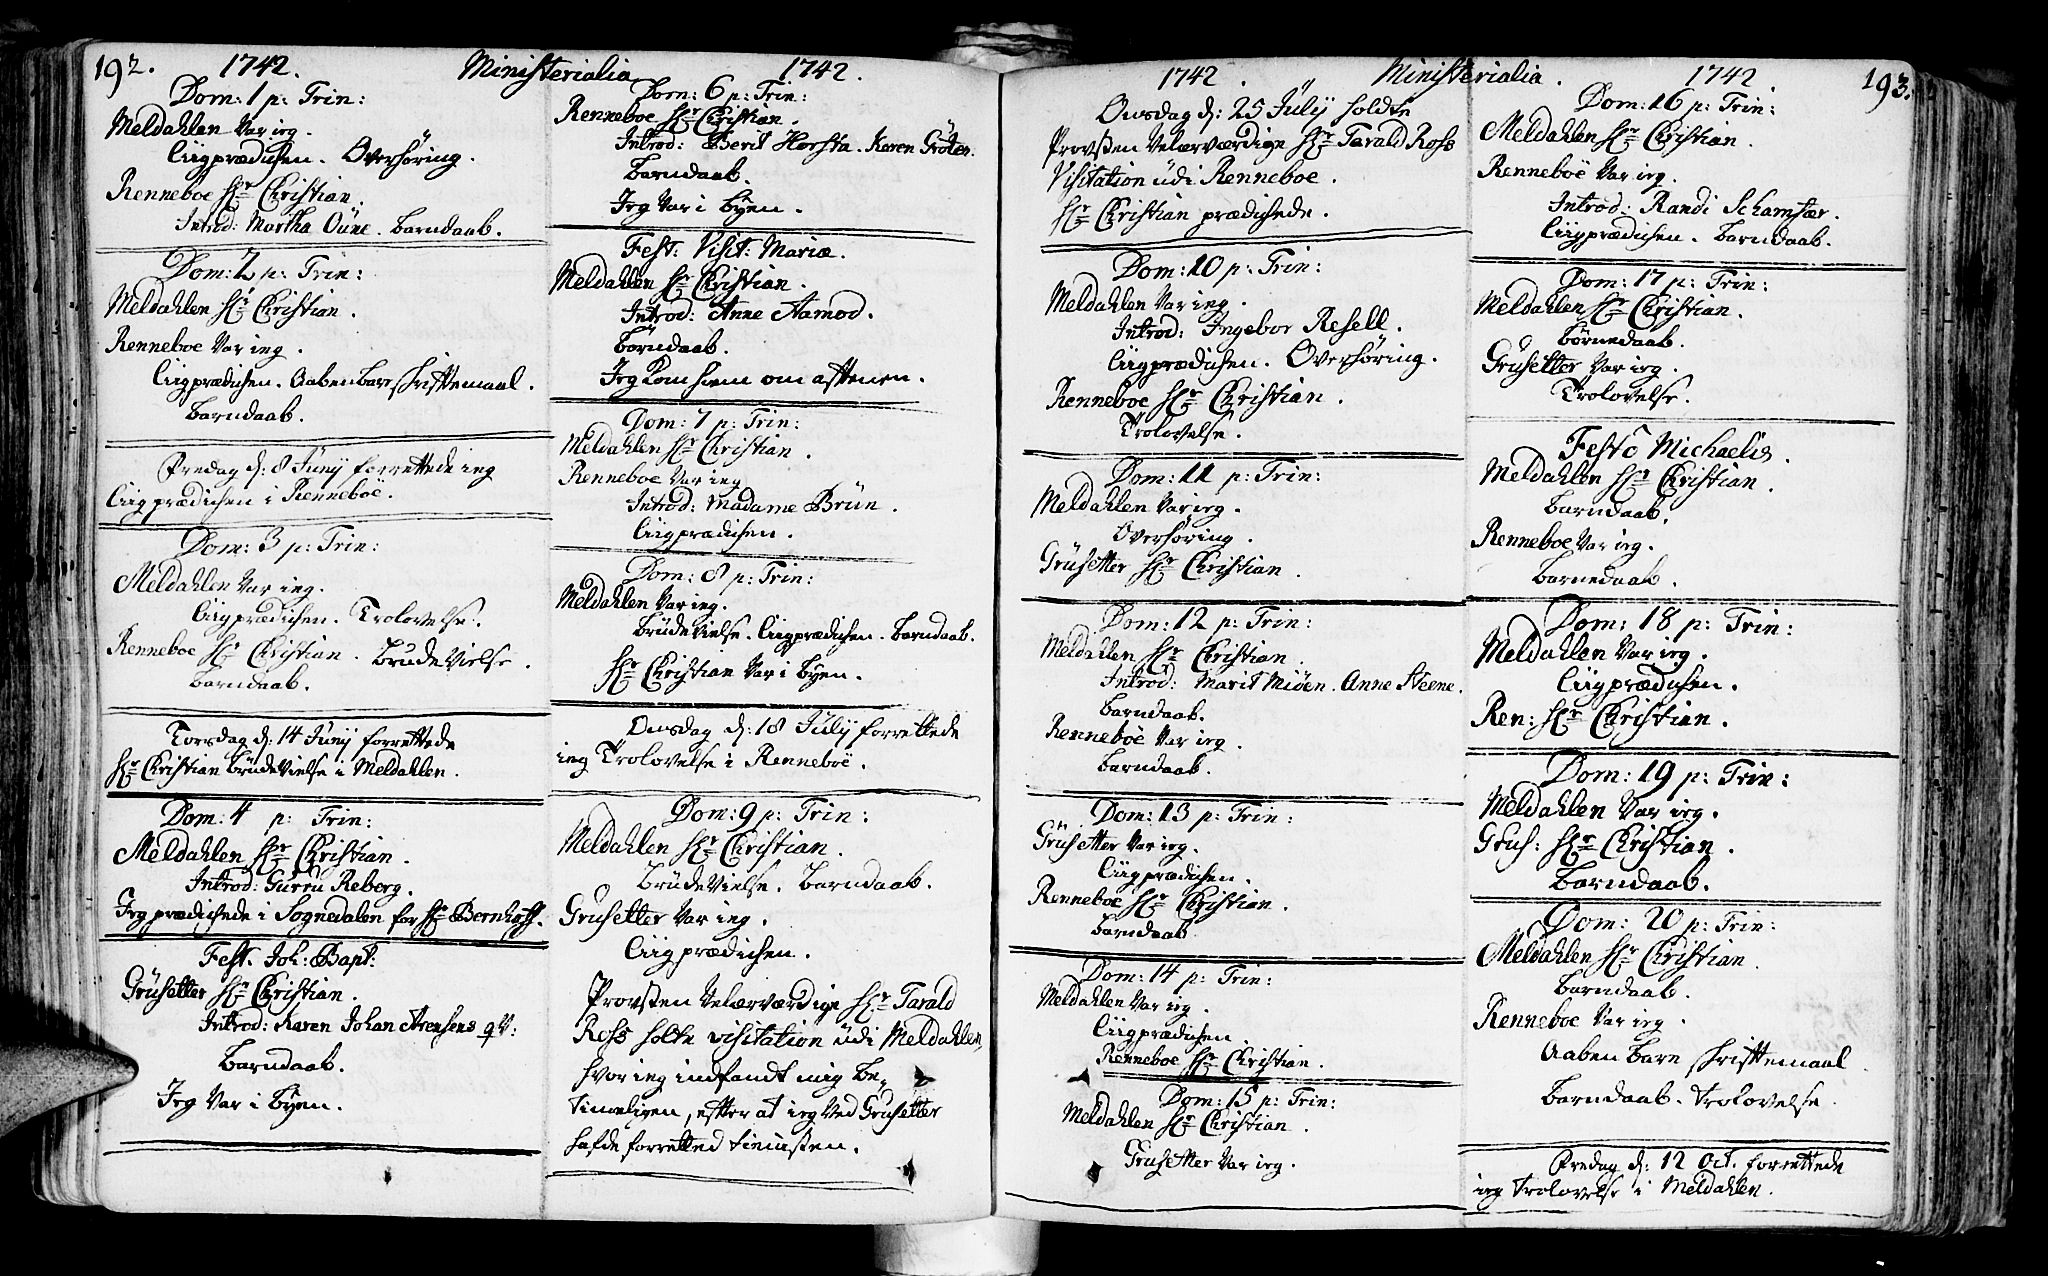 192. 1742. Ministerialia 1742.
Dom: 1 p: Trin:
Meldahlen Var ieg.
Liigprædichen. Overhöring.
Renneboe Hr Christian.
Introd: Martha Oüne. Barndaab.
Dom: 2 p: Trin:
Meldahlen Hr Christian.
Renneboe Var ieg.
Liigprædichen. Aabenbare skrifttemaal.
Barndaab.
Fredag d: 8 Junij forrettede ieg
Liigprædichen i Renneboë.
Dom: 3 p: Trin:
Meldahlen Var ieg.
Liigprædichen. Trolovelse.
Renneboe Hr Christian. Brudevielse.
Barndaab.
Torsdag d: 14 Junij forrettede
Hr Christian Brüdevielse i Meldahlen.
Dom: 4 p: Trin:
Meldahlen Hr Christian.
Introd: Gurru Reberg.
Jeg prædichede i Sognedalen for Hr Bernhoft.
Fest. Joh: Bapt:
Grüsetter Hr Christian.
Introd: Karen Johan Arensens qv:
Barndaab.
Jeg Var i Byen.
Dom: 6 p: Trin:
Renneboe Hr Christian.
Introd: Berit Horsta. Karen
Barndaab.
Jeg Var i Byen.
Fest: Visit: Mariæ.
Meldahlen Hr Christian.
Introd: Anne Aamod.
Barndaab.
Jeg kom hiem om afftenen.
Dom: 7 p: Trin:
Meldahlen Hr Christian.
Renneboe Var ieg
Introd: Madame Brün.
Liigprædichen.
Dom: 8 p: Trin:
Meldahlen Var ieg.
Brüdevielse. Liigprædichen. Barndaab.
Hr Christian Var i Byen.
Onsdag d: 18 Julij forrettede
ieg Trolovelse i Renneboë.
Dom: 9 p: Trin:
Meldahlen Hr Christian.
Brüdevielse. Barndaab.
Grusetter Var ieg.
Liigprædichen.
Provsten Velærværdige Hr Tarald
Ross holte visitation üdi Meldahlen,
hvor ieg indfandt mig be-
timeligen, efter at ieg ved Grusetter
hafde forretted tienesten.
1742. Ministerialia. 1742. 193.
Onsdag d: 25 Julij holdte
Provsten Velærværdige Hr Tarald Ross
Visitation üdi Renneboe.
Hr Christian prædichede.
Dom: 10 p: Trin:
Meldahlen Var ieg.
Introd: Ingebor Resell.
Liigprædichen. Overhöring.
Renneboe Hr Christian.
Trolovelse.
Dom: 11 p: Trin:
Meldahlen Var ieg.
Overhöring.
Grüsetter Hr Christian.
Dom: 12 p: Trin:
Meldahlen Hr Christian.
Introd: Marit Moen. Anne Steene.
Barndaab.
Renneboe Var ieg.
Barndaab.
Dom: 13 p: Trin:
Grüsetter Var ieg.
Liigprædichen.
Renneboe Hr Christian.
Barndaab
Dom: 14 p: Trin:
Meldahlen Var ieg.
Liigprædichen
Renneboe Hr Christian.
Dom: 15 p: Trin:
Meldahlen Hr Christian.
Grusetter Var ieg.
Dom: 16 p: Trin:
Meldahlen Hr Christian.
Renneboë Var ieg.
Introd: Randi Schamfær.
Liigprædichen. Barndaab.
Dom: 17 p: Trin:
Meldahlen Hr Christian.
Börnedaab.
Grusetter Var ieg.
Trolovelse.
Festo Michaelis.
Meldahlen Hr Christian.
Barndaab.
Renneboe Var ieg.
Barnedaab.
Dom: 18 p: Trin:
Meldahlen Var ieg.
Liigprædichen.
Ren: Hr Christian.
Dom: 19 p: Trin:
Meldahlen Var ieg.
Grus: Hr Christian.
Barndaab.
Dom: 20 p: Trin:
Meldahlen Hr Christian.
Barndaab.
Renneboe Var ieg.
Aabenbare skrifttemaal.
Barndaab. Trolovelse.
Fredag d: 12 Oct. forrettede
ieg Trolovelse i Meldahlen.